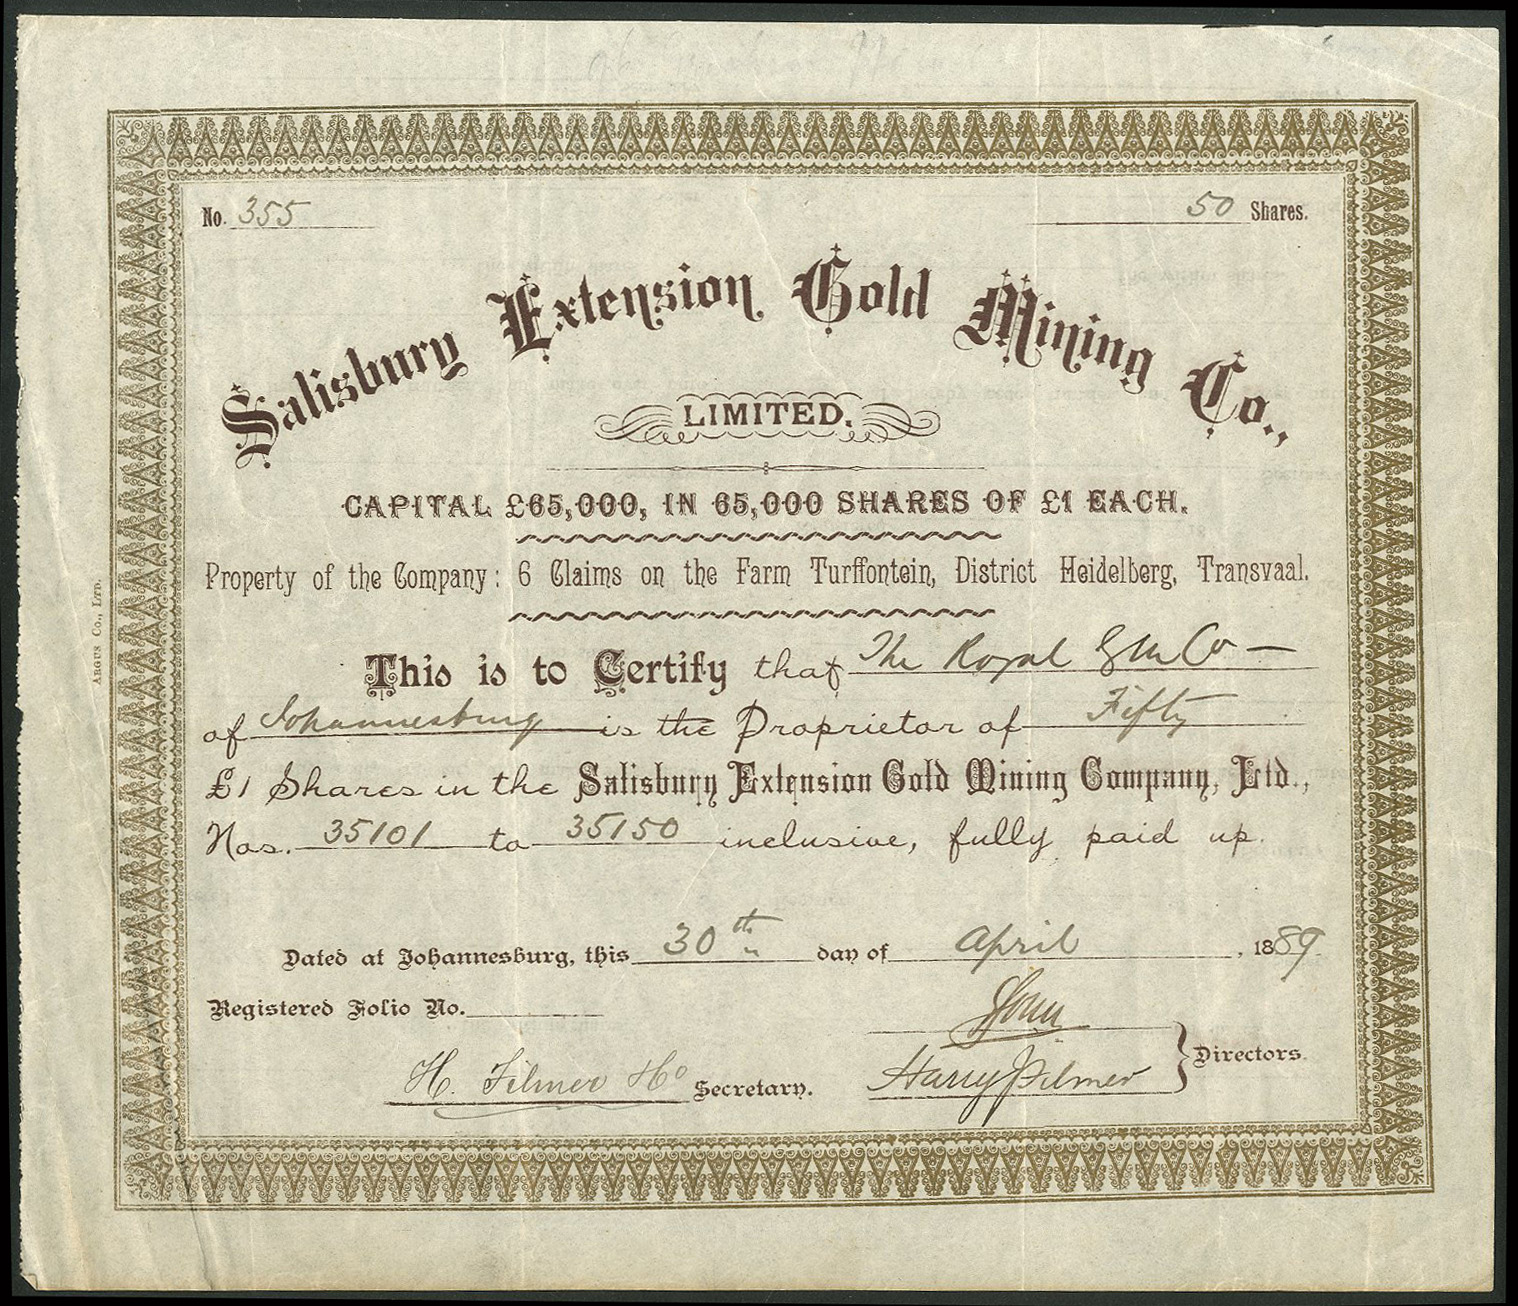 No. 355 50 Shares.
Salisbury Extension Gold Mining Co.,
LIMITED.
CAPITAL £65,000, IN 65,000 SHARES OF £1 EACH.
Property of the Company: 6 Claims on the Farm Turffontein, District Heidelberg, Transvaal.
This is to Certify that The Royal G M Co
of Johannesburg is the Proprietor of Fifty
£1 Shares in the Salisbury Extension Gold Mining Company, Ltd.,
Nos. 35101 to 35150 inclusive, fully paid up.
Dated at Johannesburg, this 30th day of April, 1889.
Registered Folio No.
H. Filmer Secretary.
Harry Filmer Directors.
ARGUS CO., LTD.